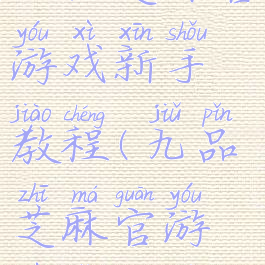 yóu xì xīn shǒu
游戏新手
jiào chéng jiǔ pǐn
教程(九品
zhī má guān yóu
芝麻官游